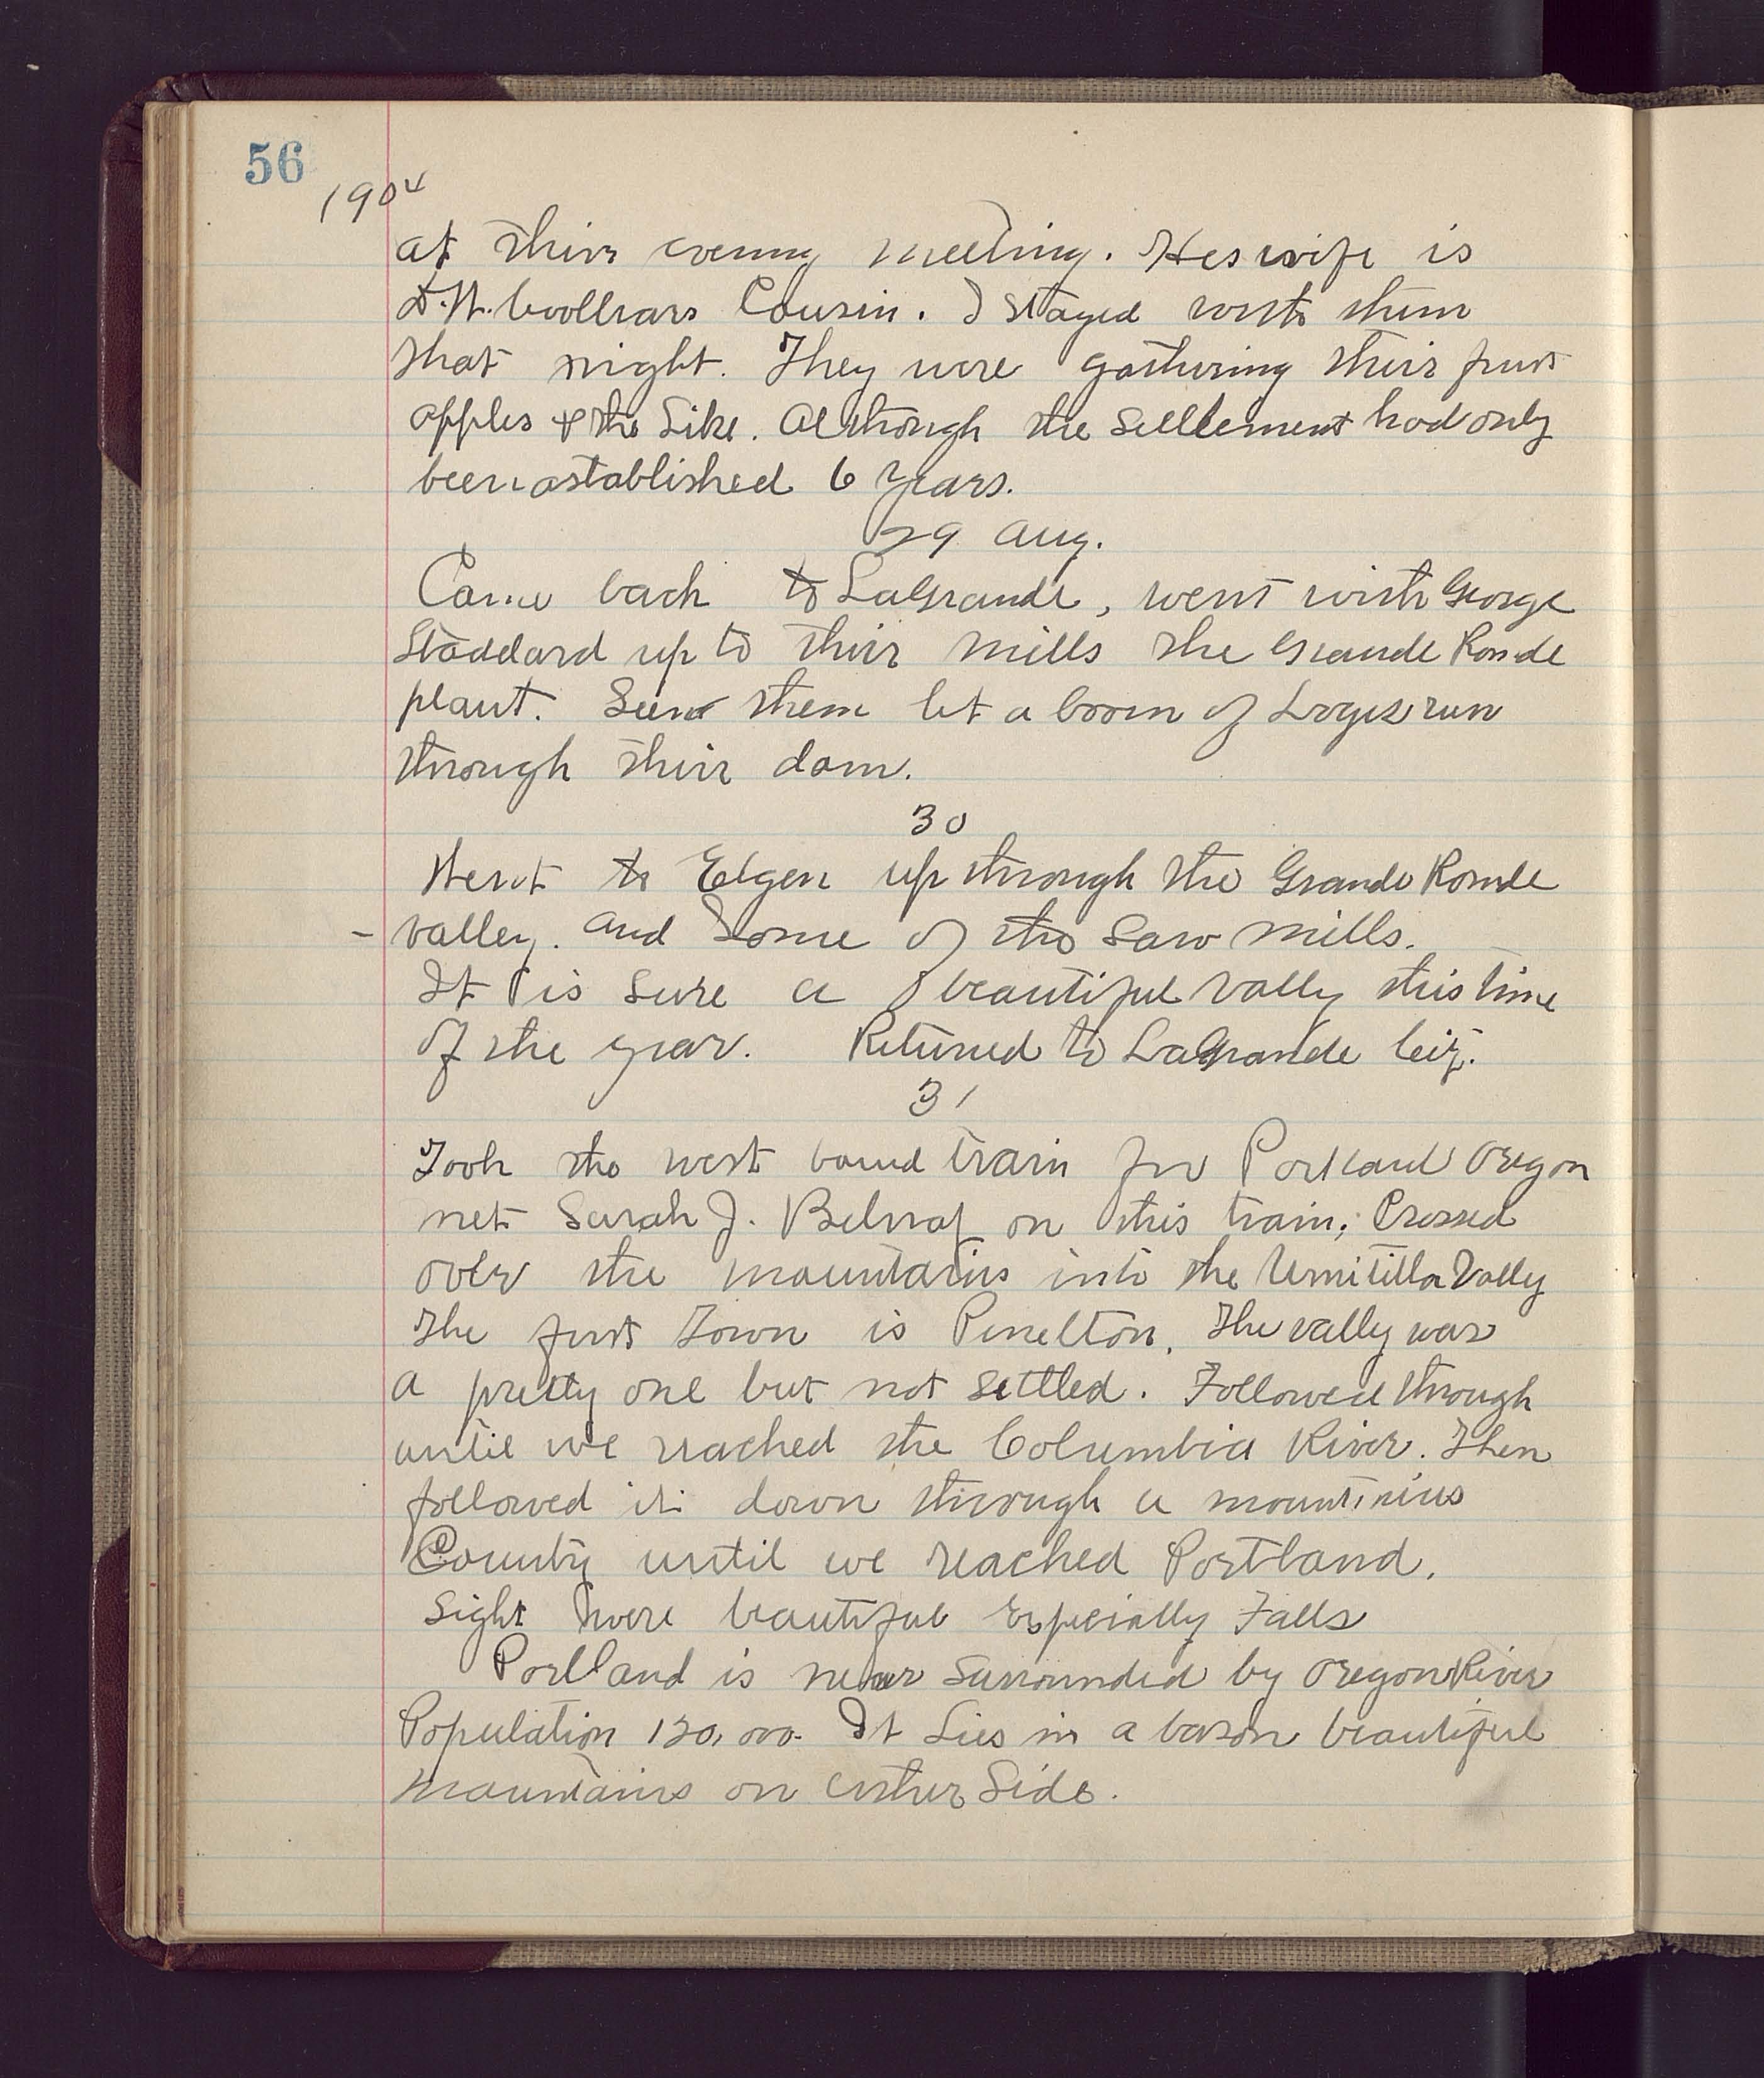 56
1904
at their evening meeting. His wife is
Cousin. I stayed with them
that night. They were gathering their fruit
apples & the Like. Although the Settlement had only
been astablished 6 years.
29 Aug.
Came back to LaGrande, went with George
Stoddard up to their mills the Grande Ronde
plant. Seen them let a boom of Logs run
through their dam.
30
Went to Elgen up through the Grande Ronde
- valley. and Some of the Saw mills.
It is Sure a beautiful vally this time
of the year. Returned to LaGrande City.
31
Took the west bound train for Portland Oregon
met Sarah J. Belnap on this train; Crossed
over the mountains into the Umitilla Vally
The first Town is Pinelton. The vally was
a pretty one but not Settled. Followed through
until we reached the Columbia River. Then
followed it down through a mountinius
County until we reached Portland.
Sight were beautiful Especially Falls
Portland is near Surrounded by Oregon River
Population 120,000. It Lies in a bason beautiful
mountains on either Side.